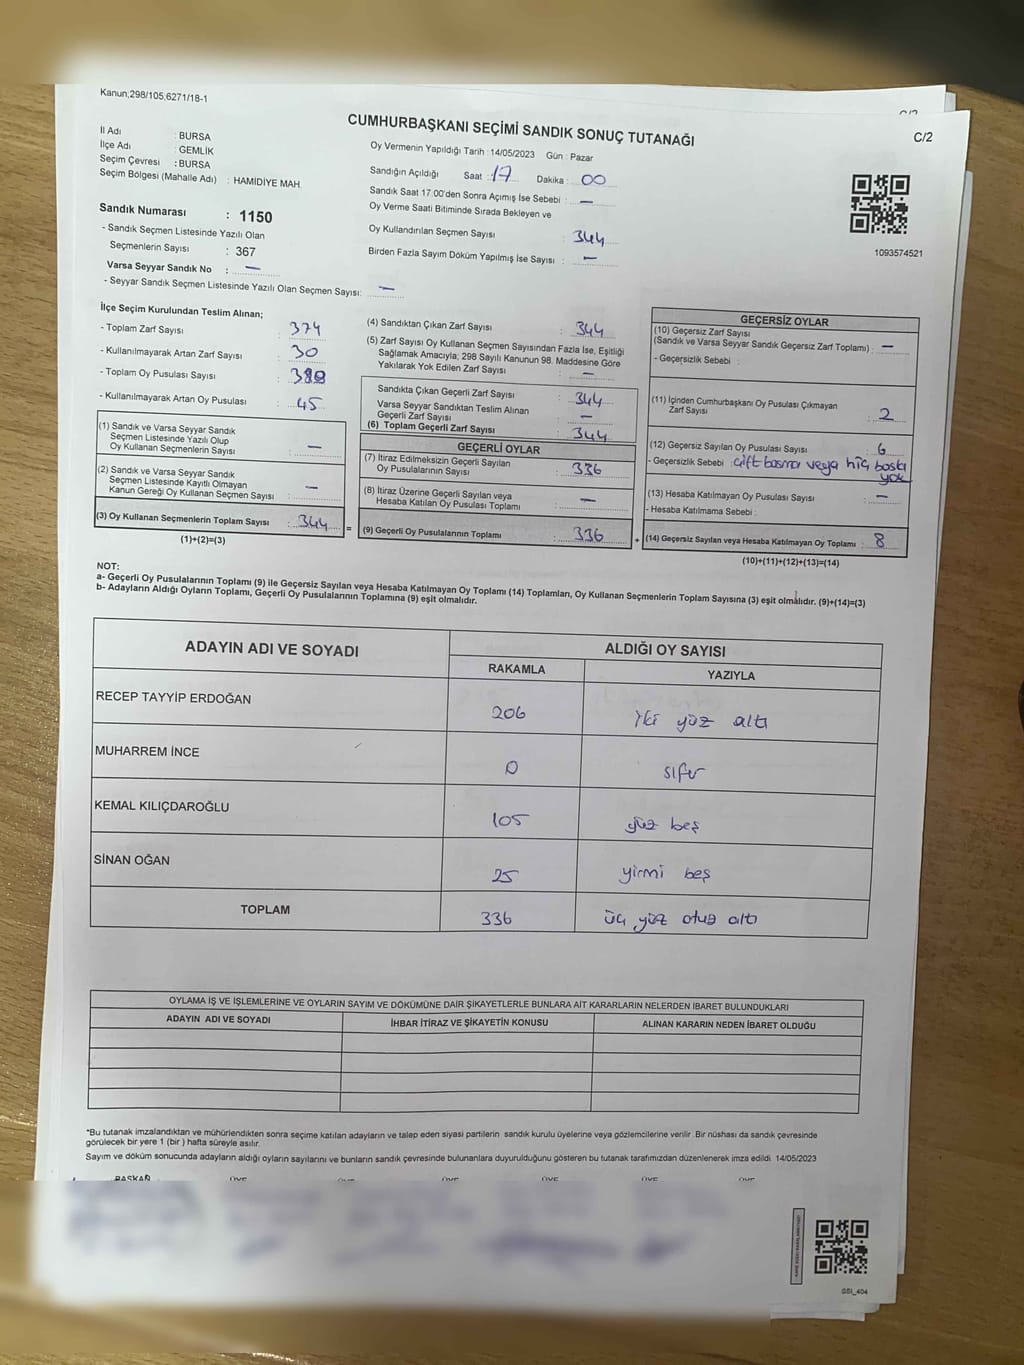 Kanun;298/105,6271/18-1
CUMHURBAŞKANI SEÇİMİ SANDIK SONUÇ TUTANAĞI
C/2
İl Adı : BURSA
İlçe Adı : GEMLİK
Seçim Çevresi : BURSA
Seçim Bölgesi (Mahalle Adı) : HAMİDİYE MAH.
Oy Vermenin Yapıldığı Tarih : 14/05/2023 Gün : Pazar
Sandığın Açıldığı Saat : 17 Dakika : 00
Sandık Saat 17:00'den Sonra Açımış İse Sebebi : —
Oy Verme Saati Bitiminde Sırada Bekleyen ve
Oy Kullandırılan Seçmen Sayısı 344
Birden Fazla Sayım Döküm Yapılmış İse Sayısı : —
1093574521
Sandık Numarası : 1150
- Sandık Seçmen Listesinde Yazılı Olan
Seçmenlerin Sayısı : 367
Varsa Seyyar Sandık No : —
- Seyyar Sandık Seçmen Listesinde Yazılı Olan Seçmen Sayısı: —
İlçe Seçim Kurulundan Teslim Alınan;
- Toplam Zarf Sayısı : 374
- Kullanılmayarak Artan Zarf Sayısı : 30
- Toplam Oy Pusulası Sayısı :
- Kullanılmayarak Artan Oy Pusulası : 45
(1) Sandık ve Varsa Seyyar Sandık
Seçmen Listesinde Yazılı Olup
Oy Kullanan Seçmenlerin Sayısı : —
(2) Sandık ve Varsa Seyyar Sandık
Seçmen Listesinde Kayıtlı Olmayan
Kanun Gereği Oy Kullanan Seçmen Sayısı : —
(3) Oy Kullanan Seçmenlerin Toplam Sayısı : 344 =
(1)+(2)=(3)
(4) Sandıktan Çıkan Zarf Sayısı : 344
(5) Zarf Sayısı Oy Kullanan Seçmen Sayısından Fazla İse, Eşitliği
Sağlamak Amacıyla; 298 Sayılı Kanunun 98. Maddesine Göre
Yakılarak Yok Edilen Zarf Sayısı : —
Sandıkta Çıkan Geçerli Zarf Sayısı : 344
Varsa Seyyar Sandıktan Teslim Alınan
Geçerli Zarf Sayısı : —
(6) Toplam Geçerli Zarf Sayısı : 344
GEÇERLİ OYLAR
(7) İtiraz Edilmeksizin Geçerli Sayılan
Oy Pusulalarının Sayısı : 336
(8) İtiraz Üzerine Geçerli Sayılan veya
Hesaba Katılan Oy Pusulası Toplamı : —
(9) Geçerli Oy Pusulalarının Toplamı : 336 +
GEÇERSİZ OYLAR
(10) Geçersiz Zarf Sayısı
(Sandık ve Varsa Seyyar Sandık Geçersiz Zarf Toplamı) : —
- Geçersizlik Sebebi :
(11) İçinden Cumhurbaşkanı Oy Pusulası Çıkmayan
Zarf Sayısı : 2
(12) Geçersiz Sayılan Oy Pusulası Sayısı : 6
- Geçersizlik Sebebi : çift basma veya hiç baskı
yok
(13) Hesaba Katılmayan Oy Pusulası Sayısı : —
- Hesaba Katılmama Sebebi :
(14) Geçersiz Sayılan veya Hesaba Katılmayan Oy Toplamı : 8
(10)+(11)+(12)+(13)=(14)
NOT:
a- Geçerli Oy Pusulalarının Toplamı (9) ile Geçersiz Sayılan veya Hesaba Katılmayan Oy Toplamı (14) Toplamları, Oy Kullanan Seçmenlerin Toplam Sayısına (3) eşit olmalıdır. (9)+(14)=(3)
b- Adayların Aldığı Oyların Toplamı, Geçerli Oy Pusulalarının Toplamına (9) eşit olmalıdır.
ADAYIN ADI VE SOYADI ALDIĞI OY SAYISI
RAKAMLA YAZIYLA
RECEP TAYYİP ERDOĞAN 206 iki yüz altı
MUHARREM İNCE 0 sıfır
KEMAL KILIÇDAROĞLU 105 yüz beş
SİNAN OĞAN 25 yirmi beş
TOPLAM 336 üç yüz otuz altı
OYLAMA İŞ VE İŞLEMLERİNE VE OYLARIN SAYIM VE DÖKÜMÜNE DAİR ŞİKAYETLERLE BUNLARA AİT KARARLARIN NELERDEN İBARET BULUNDUKLARI
ADAYIN ADI VE SOYADI İHBAR İTİRAZ VE ŞİKAYETİN KONUSU ALINAN KARARIN NEDEN İBARET OLDUĞU
*Bu tutanak imzalandıktan ve mühürlendikten sonra seçime katılan adayların ve talep eden siyasi partilerin sandık kurulu üyelerine veya gözlemcilerine verilir. Bir nüshası da sandık çevresinde
görülecek bir yere 1 (bir ) hafta süreyle asılır.
Sayım ve döküm sonucunda adayların aldığı oyların sayılarını ve bunların sandık çevresinde bulunanlara duyurulduğunu gösteren bu tutanak tarafımızdan düzenlenerek imza edildi. 14/05/2023
BAŞKAN ÜYE ÜYE ÜYE ÜYE ÜYE ÜYE